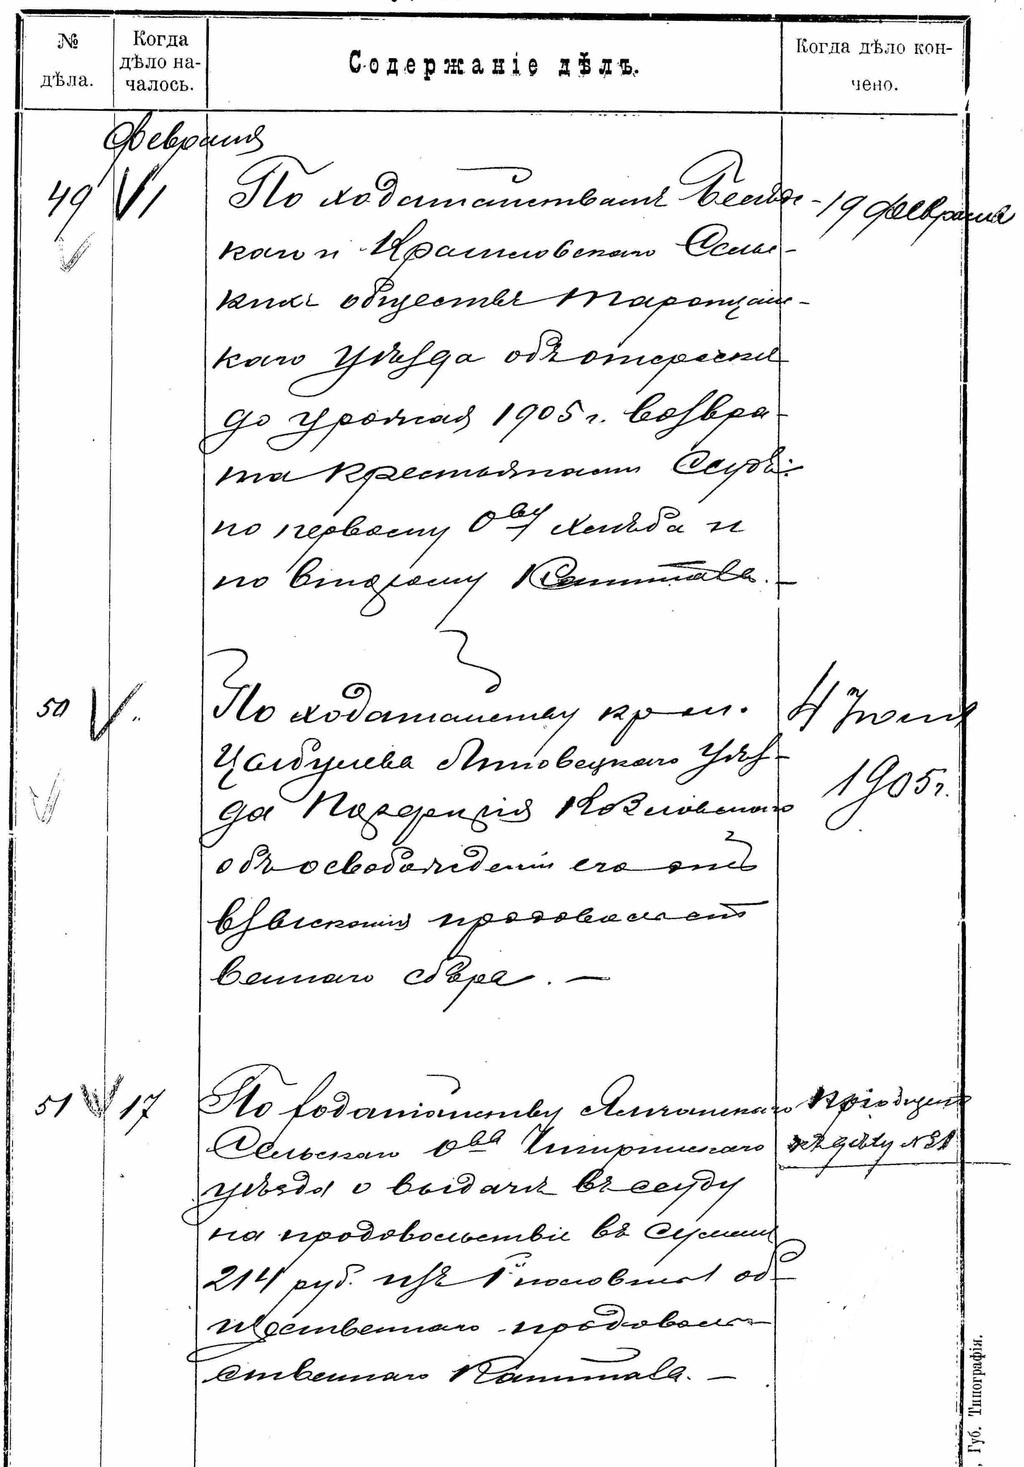 №
дѣла.
Когда
дѣло на-
чалось.
Содержаніе дѣлъ.
Когда дѣло кон-
чено.
Февраля
49
1
По ходатайствамъ
19 Февраля
каго и Крашиловскаго Сель-
скихъ обществъ Таращан-
скаго уѣзда объ отсрочкѣ
до урожая 1905 г. возвра-
та крестьянами ссудъ:
по первому О-ву хлѣба и
по второму Капитала. —
50
"
По ходатайству крест.
4 Іюня
Цыбулева Липовецкаго уѣз-
1905 г.
да Козловскаго
объ освобожденіи его отъ
взысканія продовольст
веннаго сбора. —
51
17
По ходатайству
Сельскаго О-ва Чигиринскаго
къ дѣлу №
уѣзда о выдачѣ въ ссуду
на продовольствіе въ суммѣ
214 руб. изъ 1й половины об-
щественнаго продоволь-
ственнаго Капитала. —
Губ. Типографія.